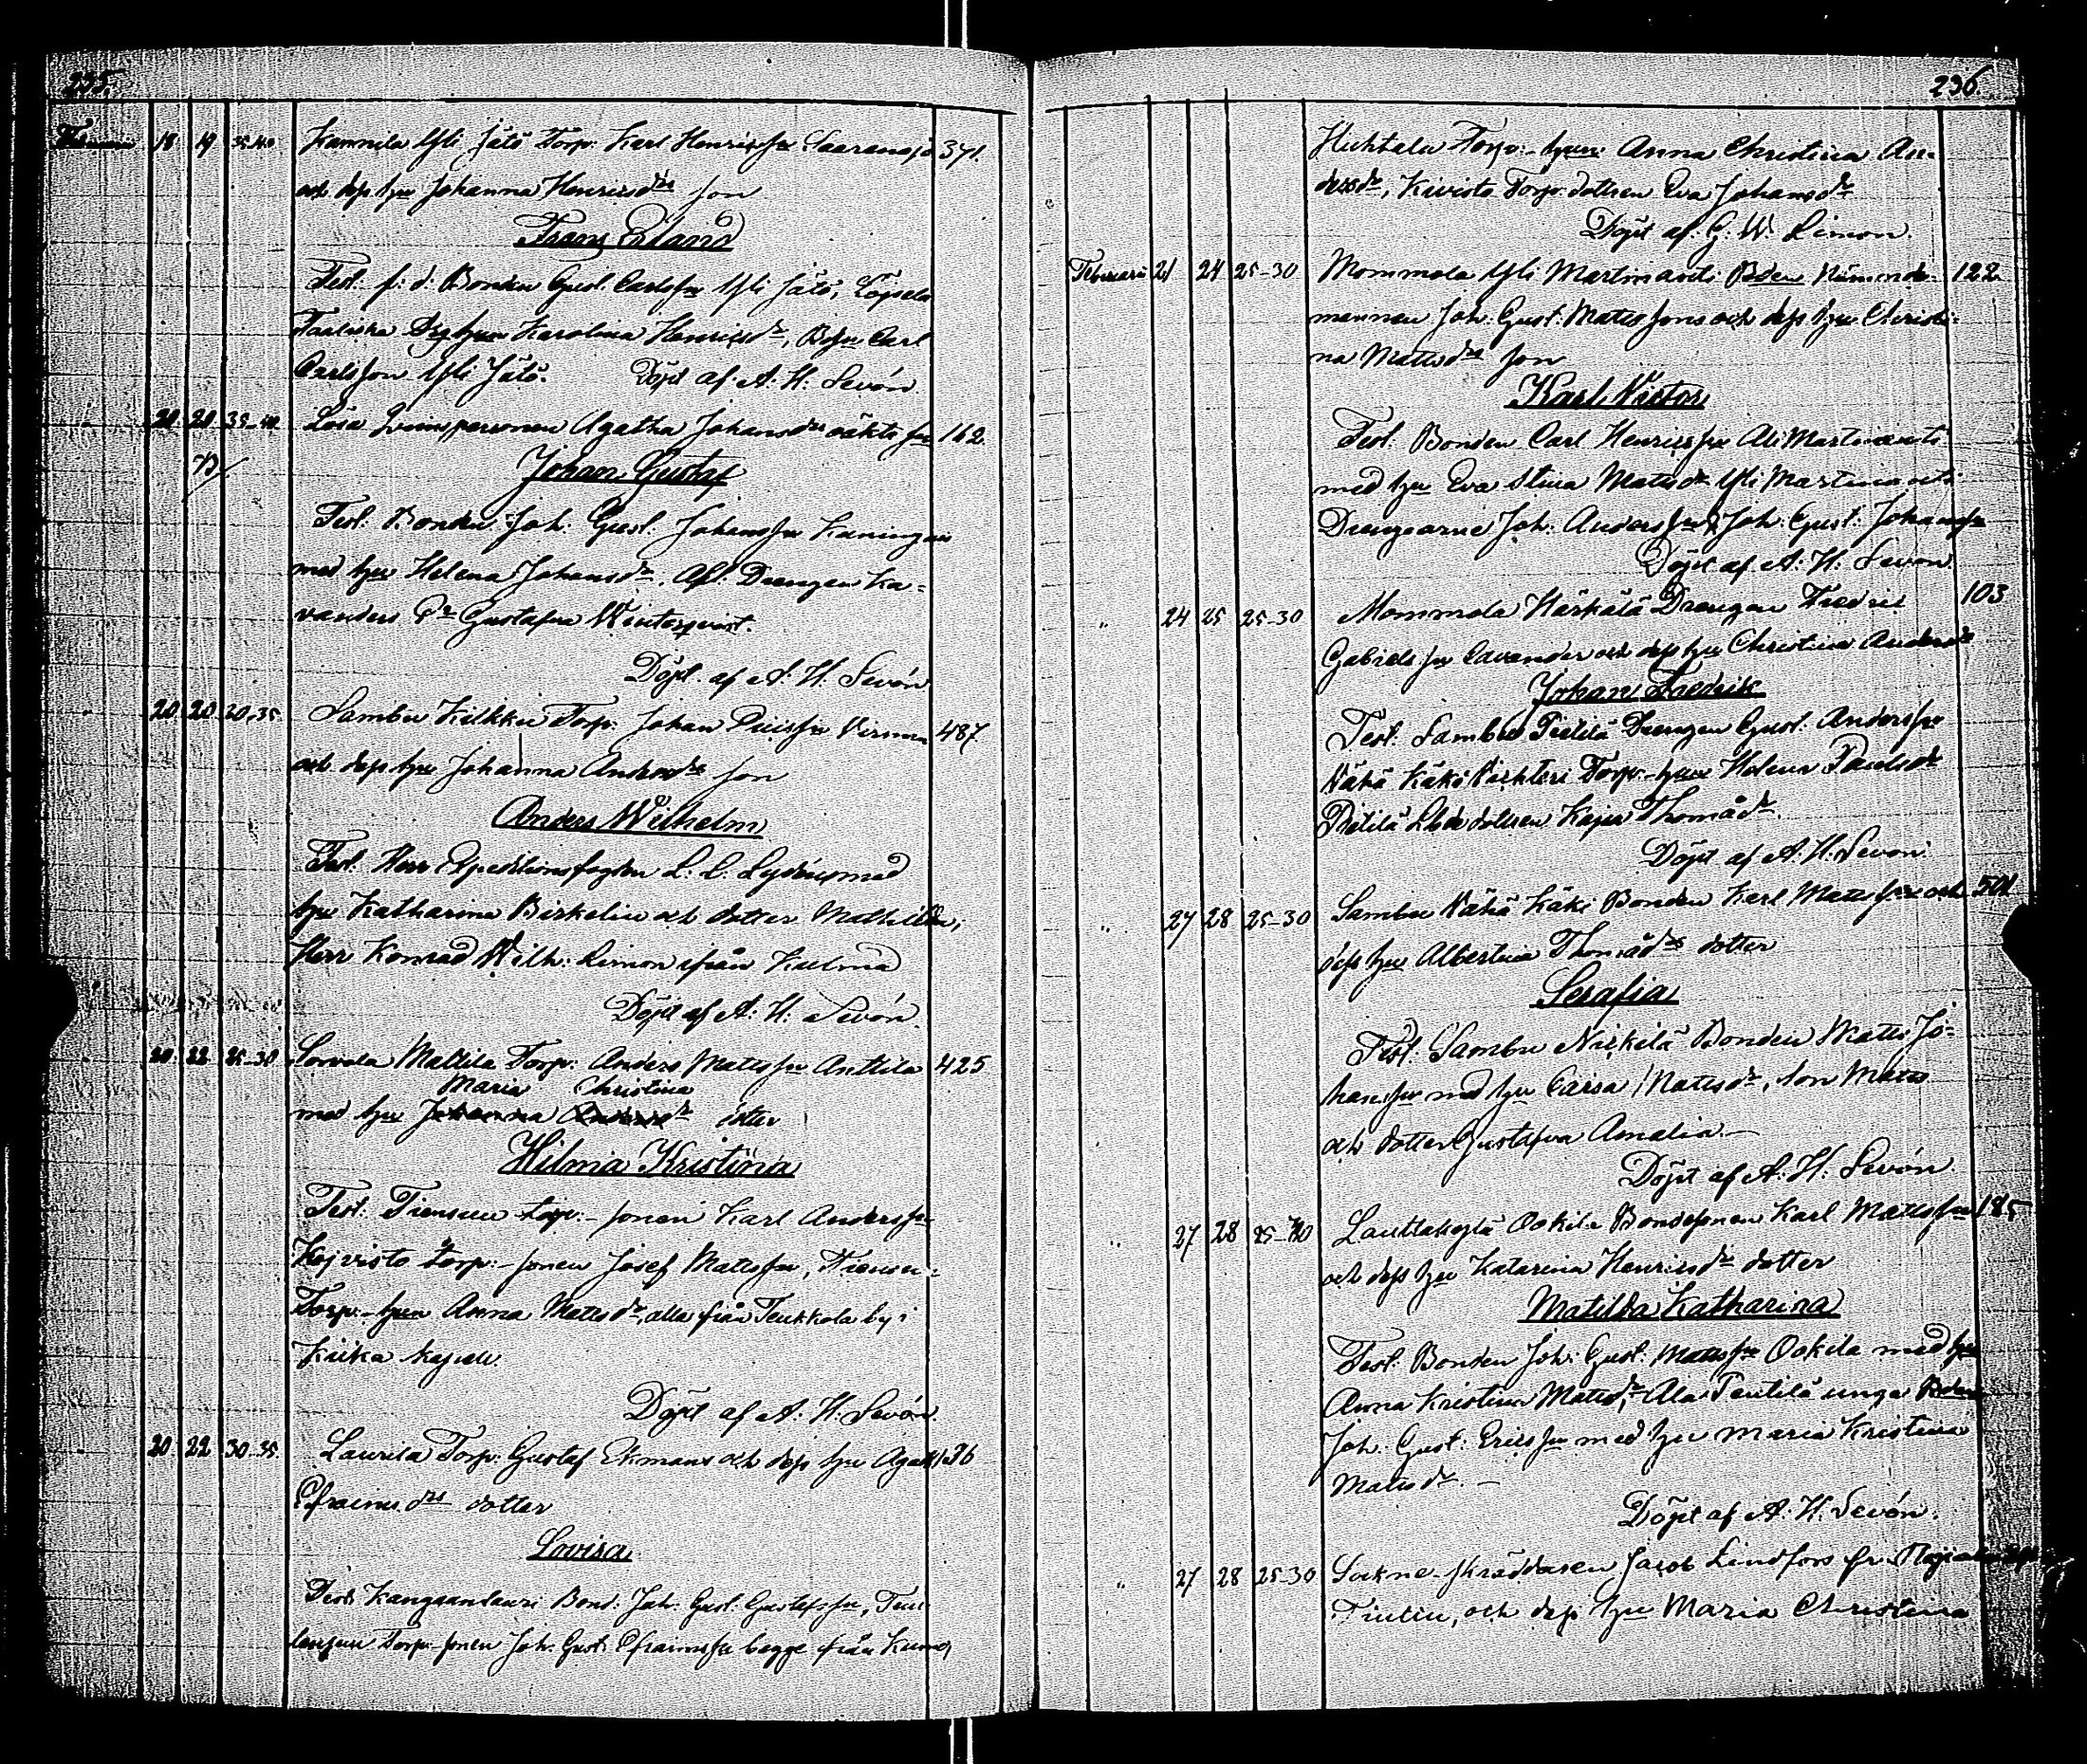 235.
Februari 18 19 35-40 Kamnila Yli Jätö Torp: Karl Henrikssn Saarensjö 371.
och dess hu Johanna Henriksdrs son
Franz Erland
Test: f: d: Bonden Gust. Carlssn Yli Jätö,
Karolina Henriksdr, Carl
Carlsson Yli Jätö. Döpt af: A: H: Sevón
20 20 35-40 Lösa Qvinspersonen Agatha Johansdrs oäkta sn 162.
Johan Gustaf
Test: Bonden Joh: Gust. Johanssn Kuningas
med hu Helena Johansdr, Afl: Drengen Ka-
vanders Dr Gustafva Winterqvist.
Döpt af A: H. Sevón
20 20 30-35 Sambu Kilkku Torp: Johan Virma 487
och dess hu Johanna Andersdrs son
Anders Wilhelm
Test: Herr Expeditionsfogden L. L. med
hu Katharina Birkelin och dotter Mathilda,
Herr Konrad Wilh: Limon från Kulma
Döpt af A: H: Sevón
20 22 25-30 Sorvola Mattila Torp: Anders Matts sn Anttila 425
Maria Christina
med hu Johanna Andersdr dotter
Hilma Kristina
Test: Tiensuu torp:- sonen Karl Anderssn
Kojvisto torp:- sonen Josef Mattssn, Tiensuu
Torp:- hun Anna Mattsdr, alla från Teukkola by i
Kiika kapell.
Döpt af A: H: Sevón.
20 22 30-35. Laurila Torp: Gustaf Ekmans och dess hu Agata 26
Efraimsdrs dotter
Lovisa
Test: Kangaanlauri Bond. Joh: Gust. Gustafssn,
Torp:- sonen Joh. Gust: Efraimssn begge från Kumo
236.
Huhtala Torp:- hun Anna Christina An-
dersdr, Kivistö Torp: dottren Eva Johansdr
Döpt af: G: W. Limon.
Februari 21 24 25-30 Mommola Yli Martinantti Bden Nämnde- 122
mannen Joh: Gust: Matts sons och dess hu Christi-
na Mattsdrs son
Karl Victor
Test: Bonden Carl Henrikssn Ali Martinantti
med hu Eva Stina Mattsdr Yli Martinantti
Drengarne Joh: Anderssn & Joh: Gust: Johanssn
Döpt af A: H: Sevón
" 24 25 25-30 Mommola Härkälä Drengen Fredrik 103
Gabriels sn Cavander och dess hu Christina Andersdr
Johan Fredrik
Test: Sambu Pietilä Drengen Gust: Anderssn
Vähä Käki Torp:- hun Helena Paulsdr
Pietilä dottren Kajsa Thomædr.
Döpt af A: H: Sevón.
" 27 28 25-30 Sambu Vähä Käki Bonden Karl Matts sn och 501
dess hu Albertina Thomædrs dotter
Serafia
Test: Sambu Nickilä Bonden Matts Jo-
hanssn med hu Caisa Mattsdr, son Matts
och dotter Gustafva Amalia.—
Döpt af A: H: Sevón
" 27 28 25-30 Lauttakylä Ockila Bondesonen Karl Mattssn 185
och dess hu Katarina Henriksdr dotter
Matilda Katharina
Test: Bonden Joh: Gust: Mattssn Ockila med hu
Anna Kristina Mattsdr, Ala Pentilä unga Bden
Joh: Gust: Erikssn med hu Maria Kristina
Mattsdr.—
Döpt af A: H: Sevón.
" 27 28 25-30 Sockne-skräddaren Jacob Lindfors fr:
och dess hu Maria Christina